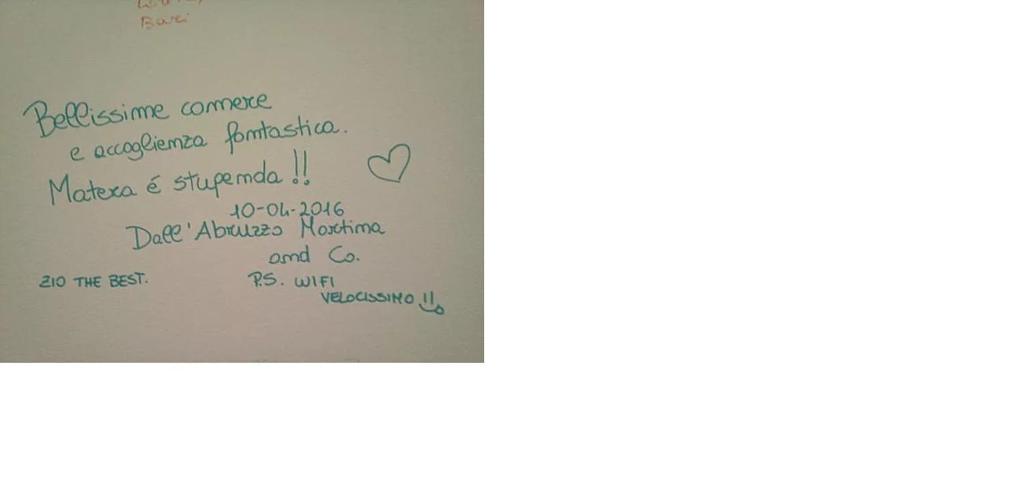 Bari
Bellissime camere
e accoglienza fantastica.
Matera é stupenda!!
10-04-2016
Dall'Abruzzo Martina
and Co.
ZIO THE BEST.
P.S. WIFI
VELOCISSIMO!!